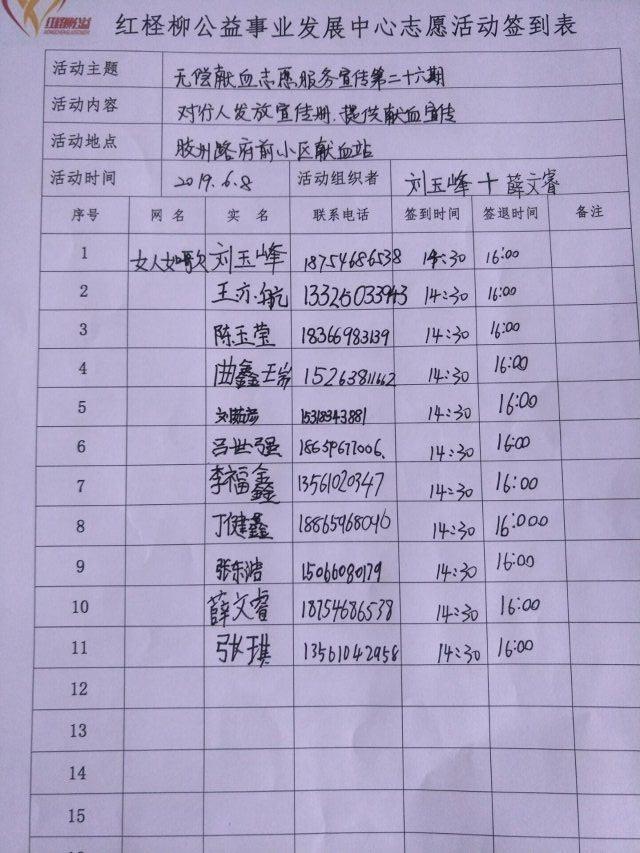 红柽柳公益事业发展中心志愿活动签到表
活动主题 无偿献血志愿服务宣传第二十六期
活动内容 对行人发放宣传册、提供献血宣传
活动地点 胶州路府前小区献血站
活动时间 2019.6.8 活动组织者 刘玉峰 + 薛文睿
序号 网名 实名 联系电话 签到时间 签退时间 备注
1 刘玉峰 18754686538 14:30 16:00
2 王亦航 14:30 16:00
3 陈玉莹 18366983139 14:30 16:00
4 曲鑫 15263811662 14:30 16:00
5 15318343881 14:30 16:00
6 吕世强 18659677006. 14:30 16:00
7 李福鑫 13561020347 14:30 16:00
8 丁健鑫 18865968046 14:30 16:000
9 张东洁 15066080179 14:30 16:00
10 薛文睿 18754686538 14:30 16:00
11 张琪 13561042958 14:30 16:00
12
13
14
15